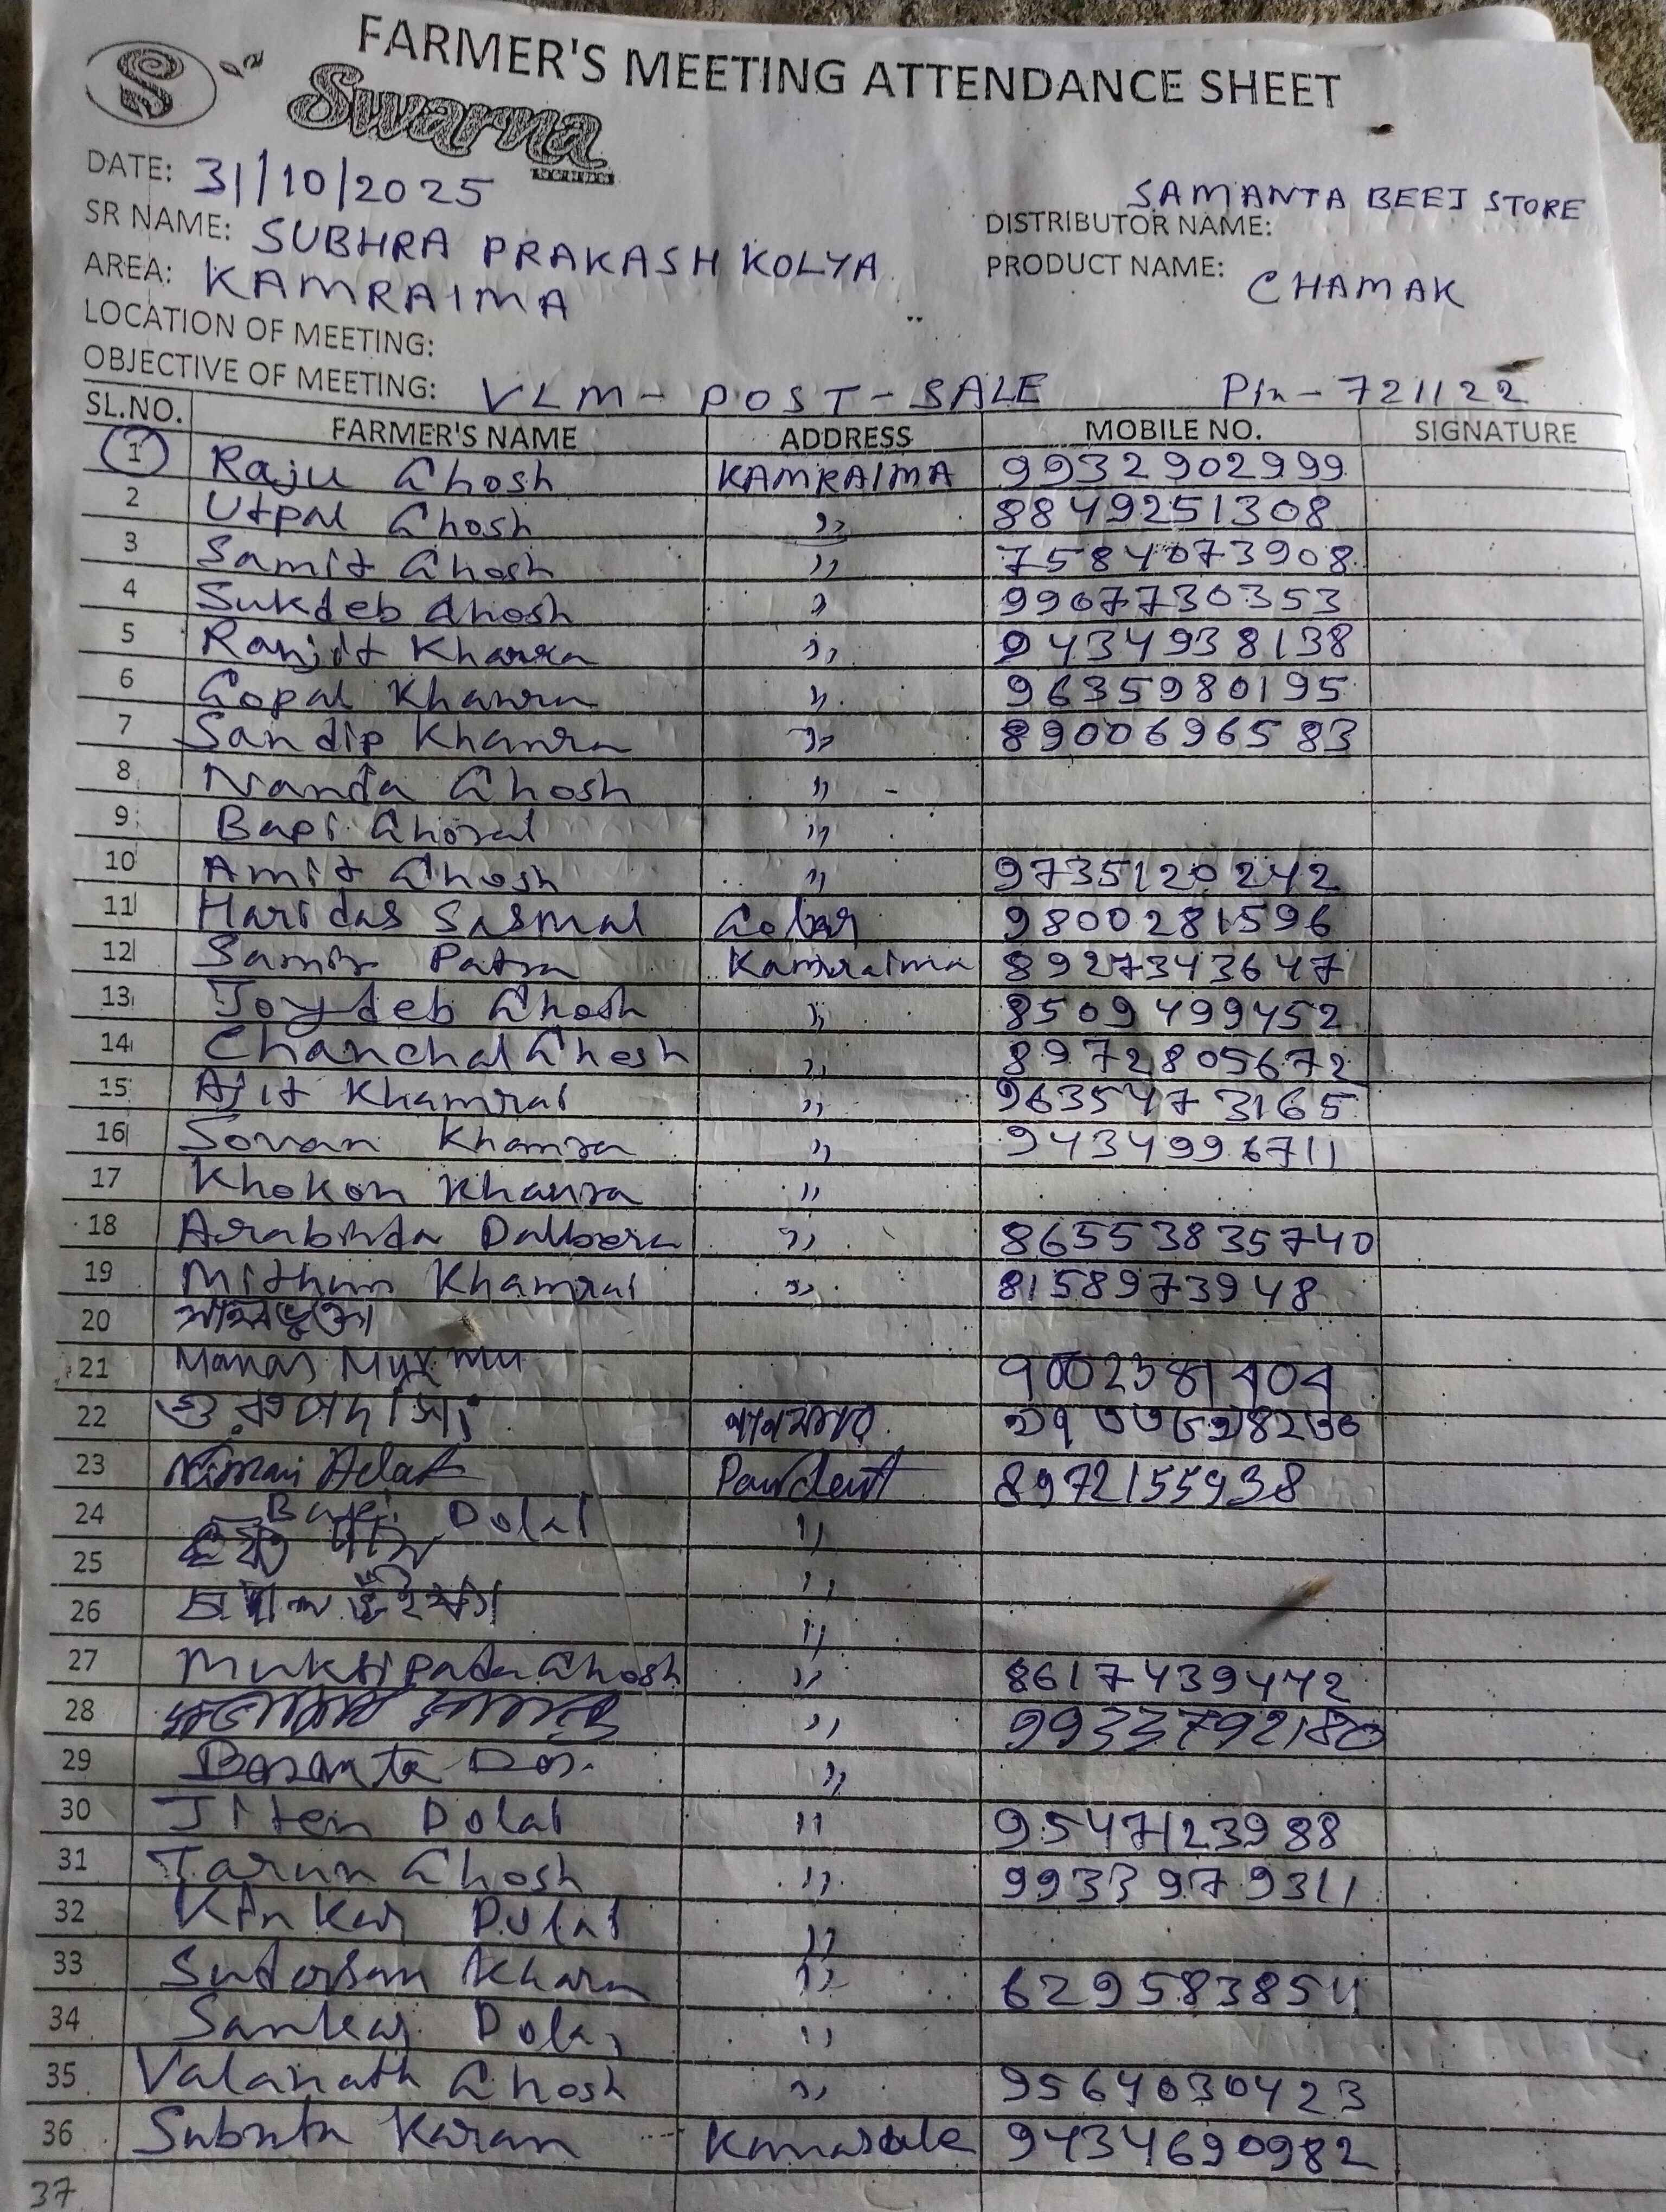 FARMER'S MEETING ATTENDANCE SHEET
S Swarna
DATE: 31/10/2025
SAMANTA BEEJ STORE
SR NAME: SUBHRA PRAKASH KOLYA DISTRIBUTOR NAME:
AREA: KAMRAIMA PRODUCT NAME: CHAMAK
LOCATION OF MEETING:
OBJECTIVE OF MEETING: VLM - POST - SALE Pin - 721122
SL.NO. FARMER'S NAME ADDRESS MOBILE NO. SIGNATURE
1 Raju Ghosh KAMRAIMA 9932902999
2 Utpal Ghosh ,, 8849251308
3 Samit Ghosh ,, 7584073908
4 Sukdeb Ghosh ,, 9967730353
5 Ranjit Khanra ,, 9434938138
6 Gopal Khanra ,, 9635980195
7 Sandip Khanra ,, 8900696583
8 Nanda Ghosh ,, -
9 Bapi Ghosal ,,
10 Amit Ghosh ,, 9735120242
11 Haridas Sasmal 9800281596
12 Samir Patra Kamraima 8927343647
13 Joydeb Ghosh ,, 8509499452
14 Chanchal Ghosh ,, 8972805672
15 Ajit Khamrai ,, 9635473165
16 Sovan Khamra ,, 9434996711
17 Khokon Khanra ,,
18 Arabinda Dalbera ,, 86553835740
19 Mithun Khamrai ,, 8158973948
20
21 Manas Murmu
22 গুরুপদ সিং
23 Nimai Adak 8972155938
24 Bapi Dolai ,,
25 ,,
26 ,,
27 Muktipada Ghosh ,, 8617439472
28 ,, 9933792180
29 Basanta Das. ,,
30 Jiten Dolai ,, 9547123988
31 Tarun Ghosh ,, 9933979311
32 Kinkar Dolai ,,
33 Sudarsan Khara ,, 6295838554
34 Sankar Dolai ,,
35 Valanath Ghosh ,, 9564030423
36 Subrata Karan 9434690982
37